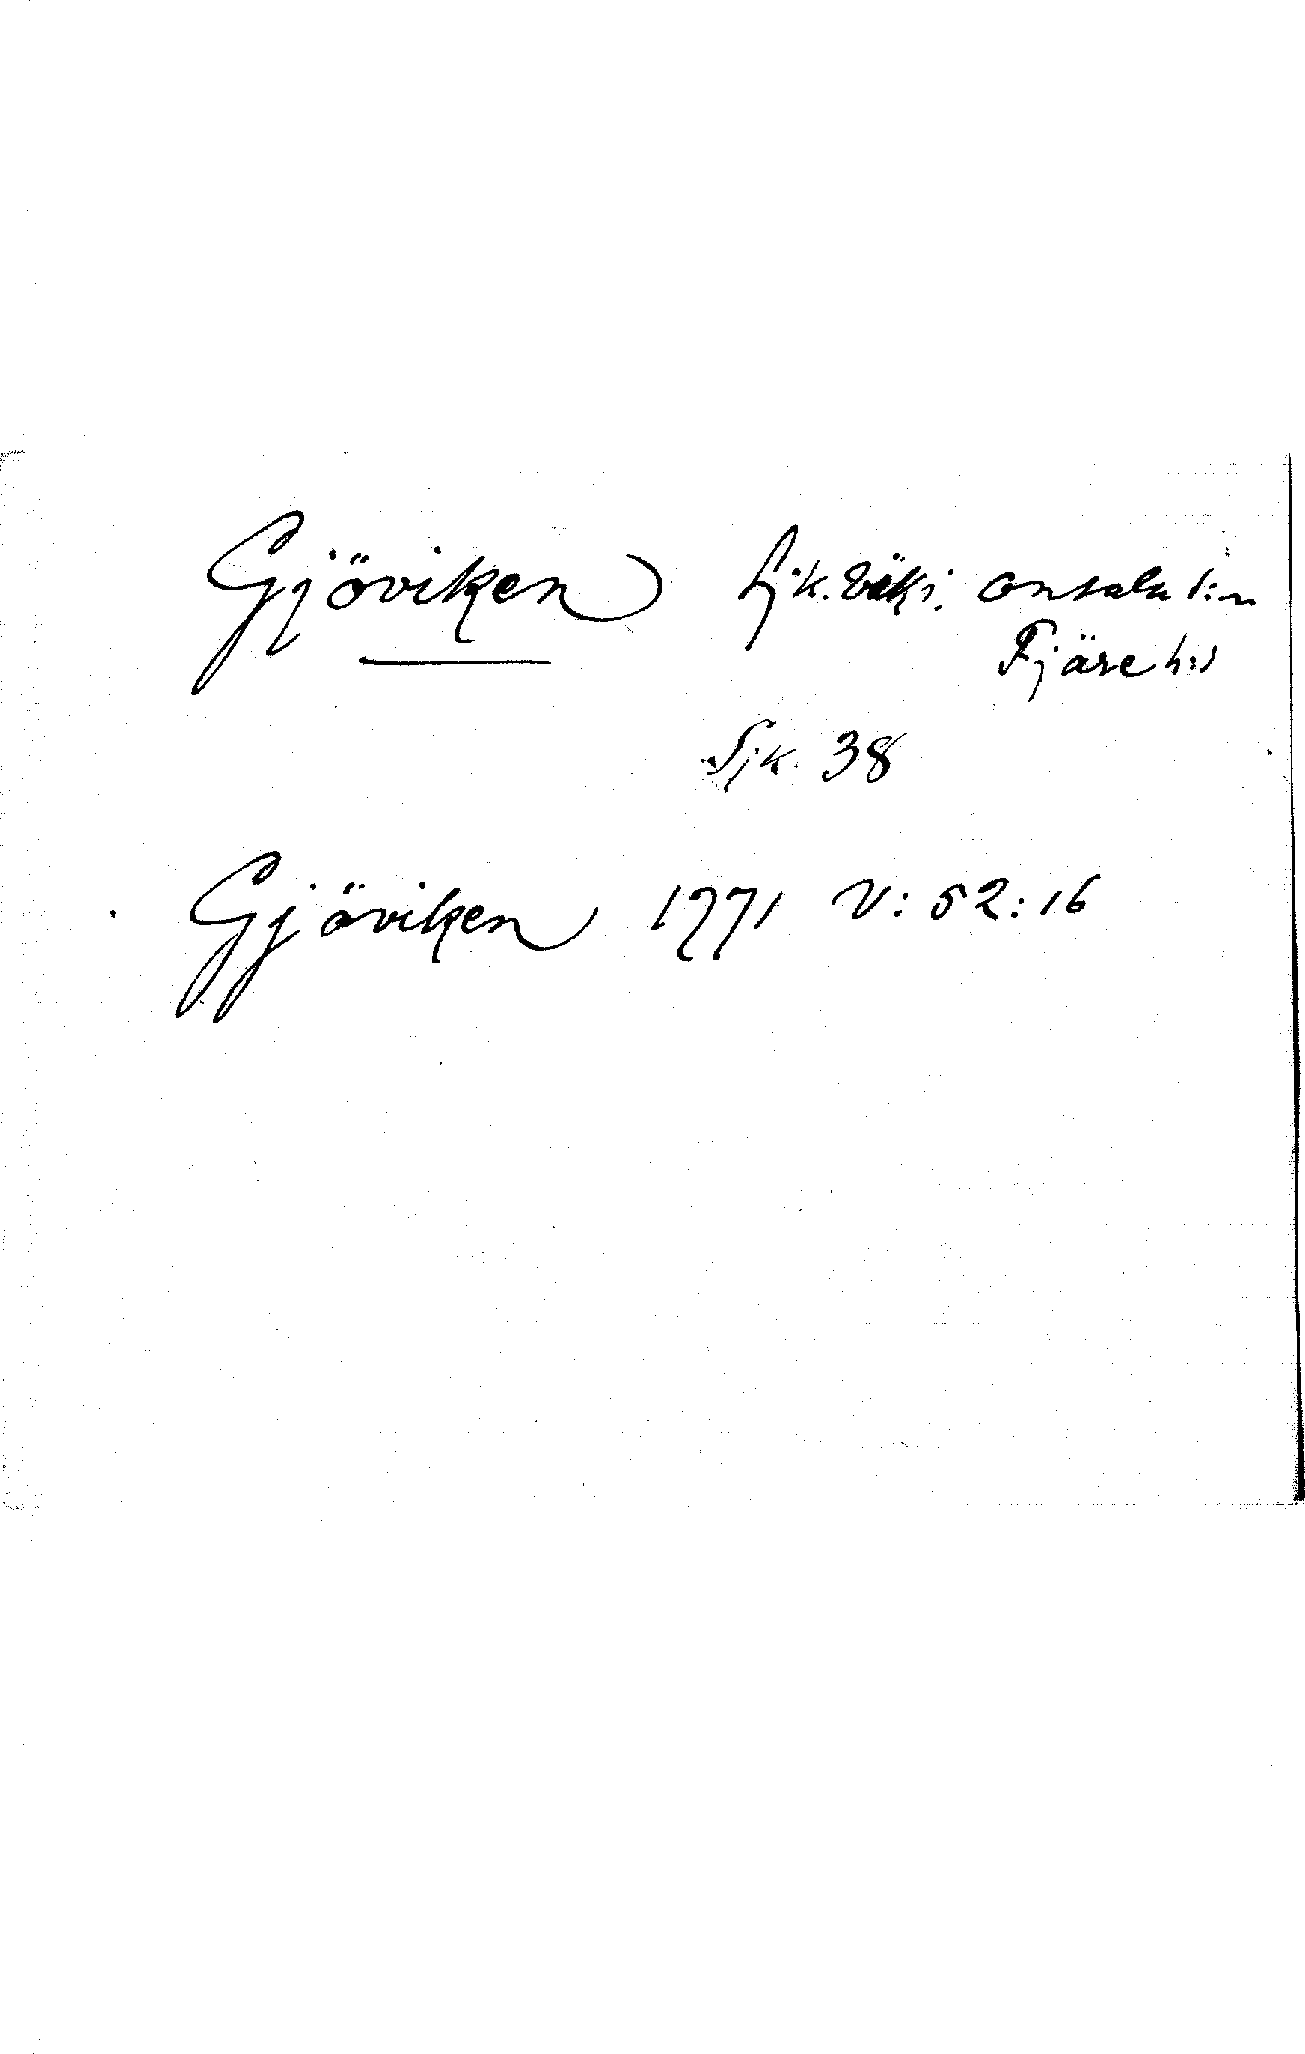 Gjöviken Sjk. Onsala s:n
Fjäre h:d
Sjk. 38
Gjöviken 1771 V: 52:16